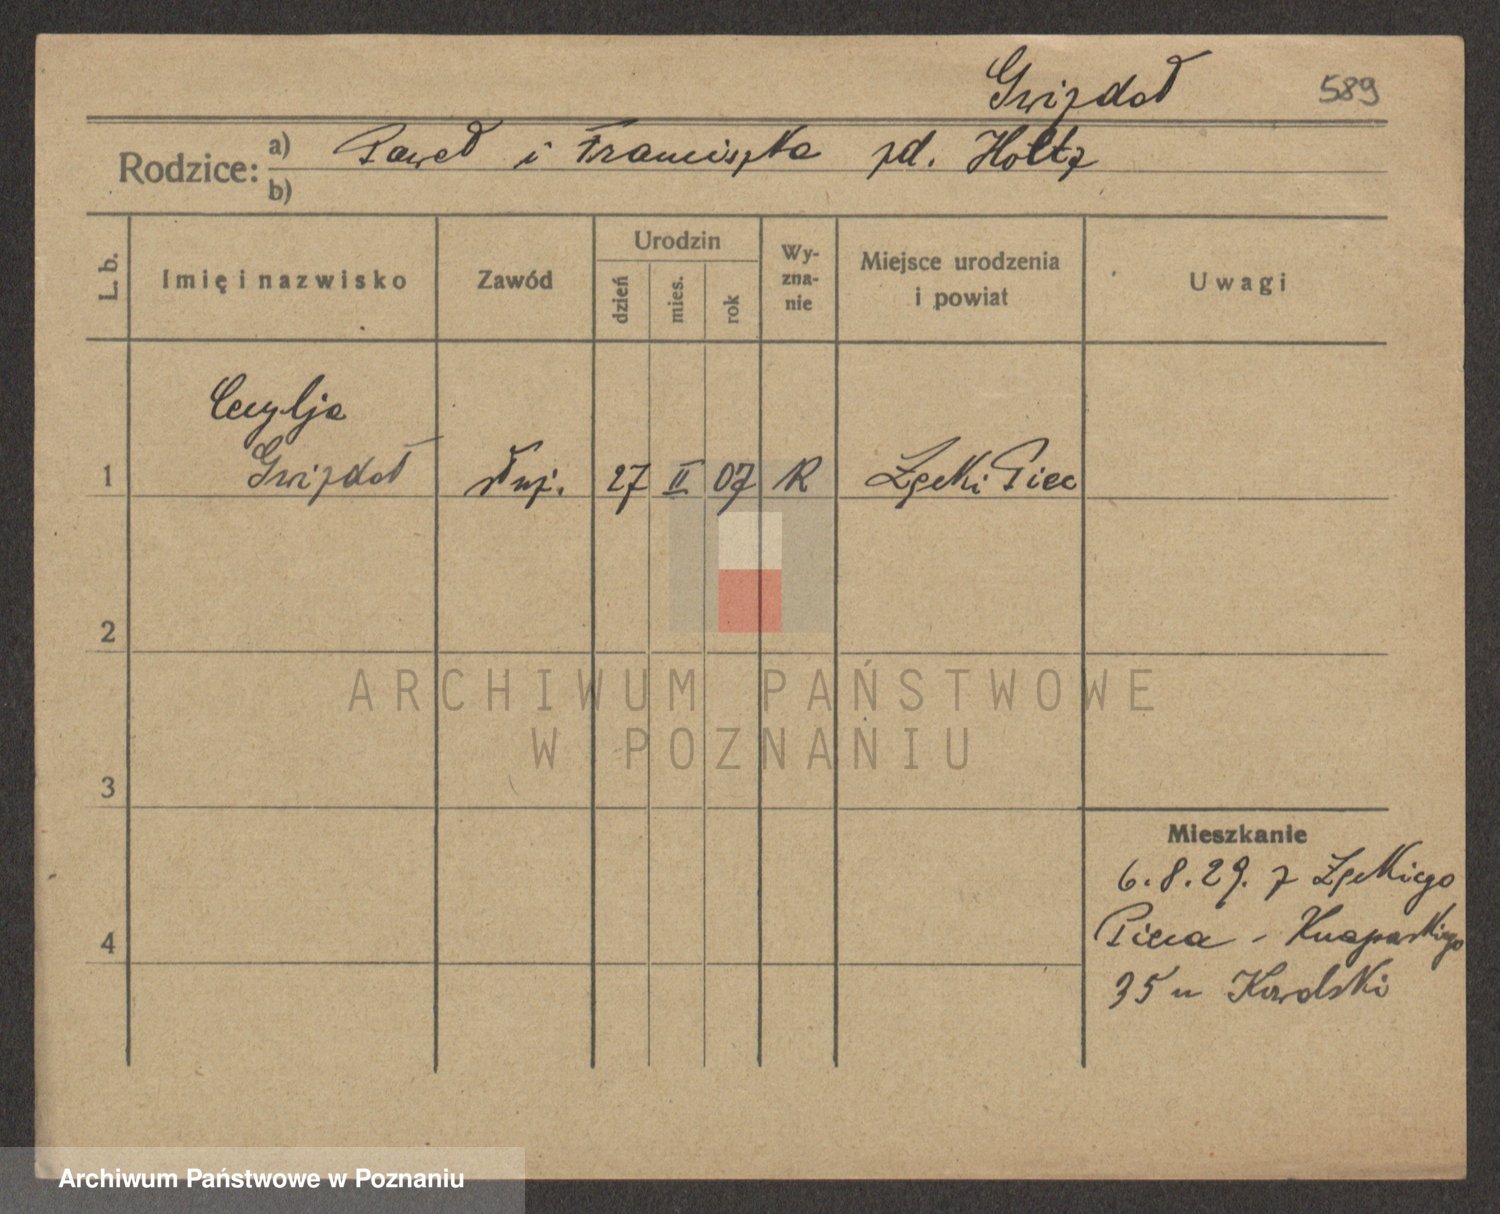 Gwizdoł 589
Rodzice: a) Paweł i Franciszka zd. Holtz
b)
L. b. Imię i nazwisko Zawód Urodzin dzień mies. rok Wy-zna-nie Miejsce urodzenia i powiat Uwagi
Cecylja
1 Gwizdoł służ. 27 II 07 R Zgelki Piec
2
ARCHIWUM PAŃSTWOWE
W POZNANIU
3
Mieszkanie
6.8.29. z Zgelkiego
4 Pieca - Knapowskiego
35 u Kowalski
Archiwum Państwowe w Poznaniu